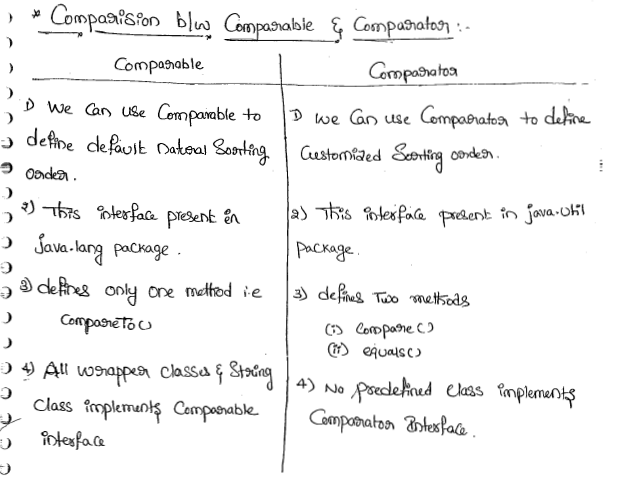 * Comparision b/w Comparable & Comparator :-
Comparable
1) We can use Comparable to
define default natural Sorting
order.
2) This interface present in
java.lang package.
3) defines only one method i.e
compareTo()
4) All wrapper classes & String
class implements Comparable
interface
Comparator
1) we can use Comparator to define
Customized Sorting order.
2) This interface present in java.util
package.
3) defines Two methods
(i) compare()
(ii) equals()
4) No predefined class implements
Comparator Interface.